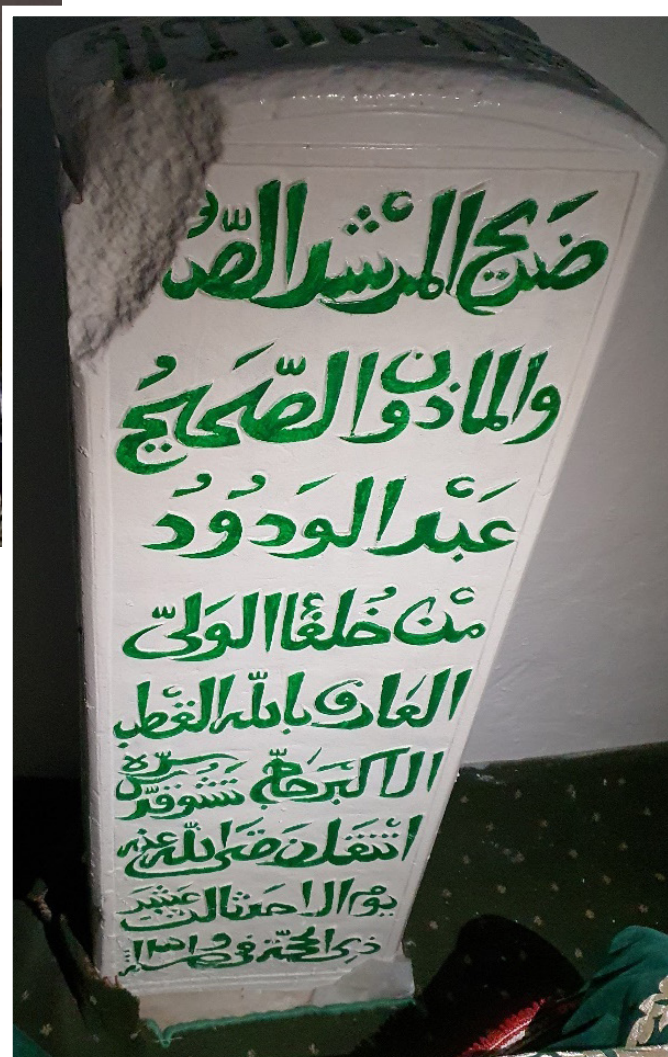 ضَرِيحُ المرْشدالصُّو
والماذونُ الصَّحيحُ
عَبْدالوَدوُدُ
مْن خُلفَاالوَلىّ
العَارفِ باللهالقطب
الاكبَرحَاجّ تشوقدّس سرّه
انتقلرَضَى الله عنه
يوْم الاحد ثالث عَشَر
ذى الحجّة فى